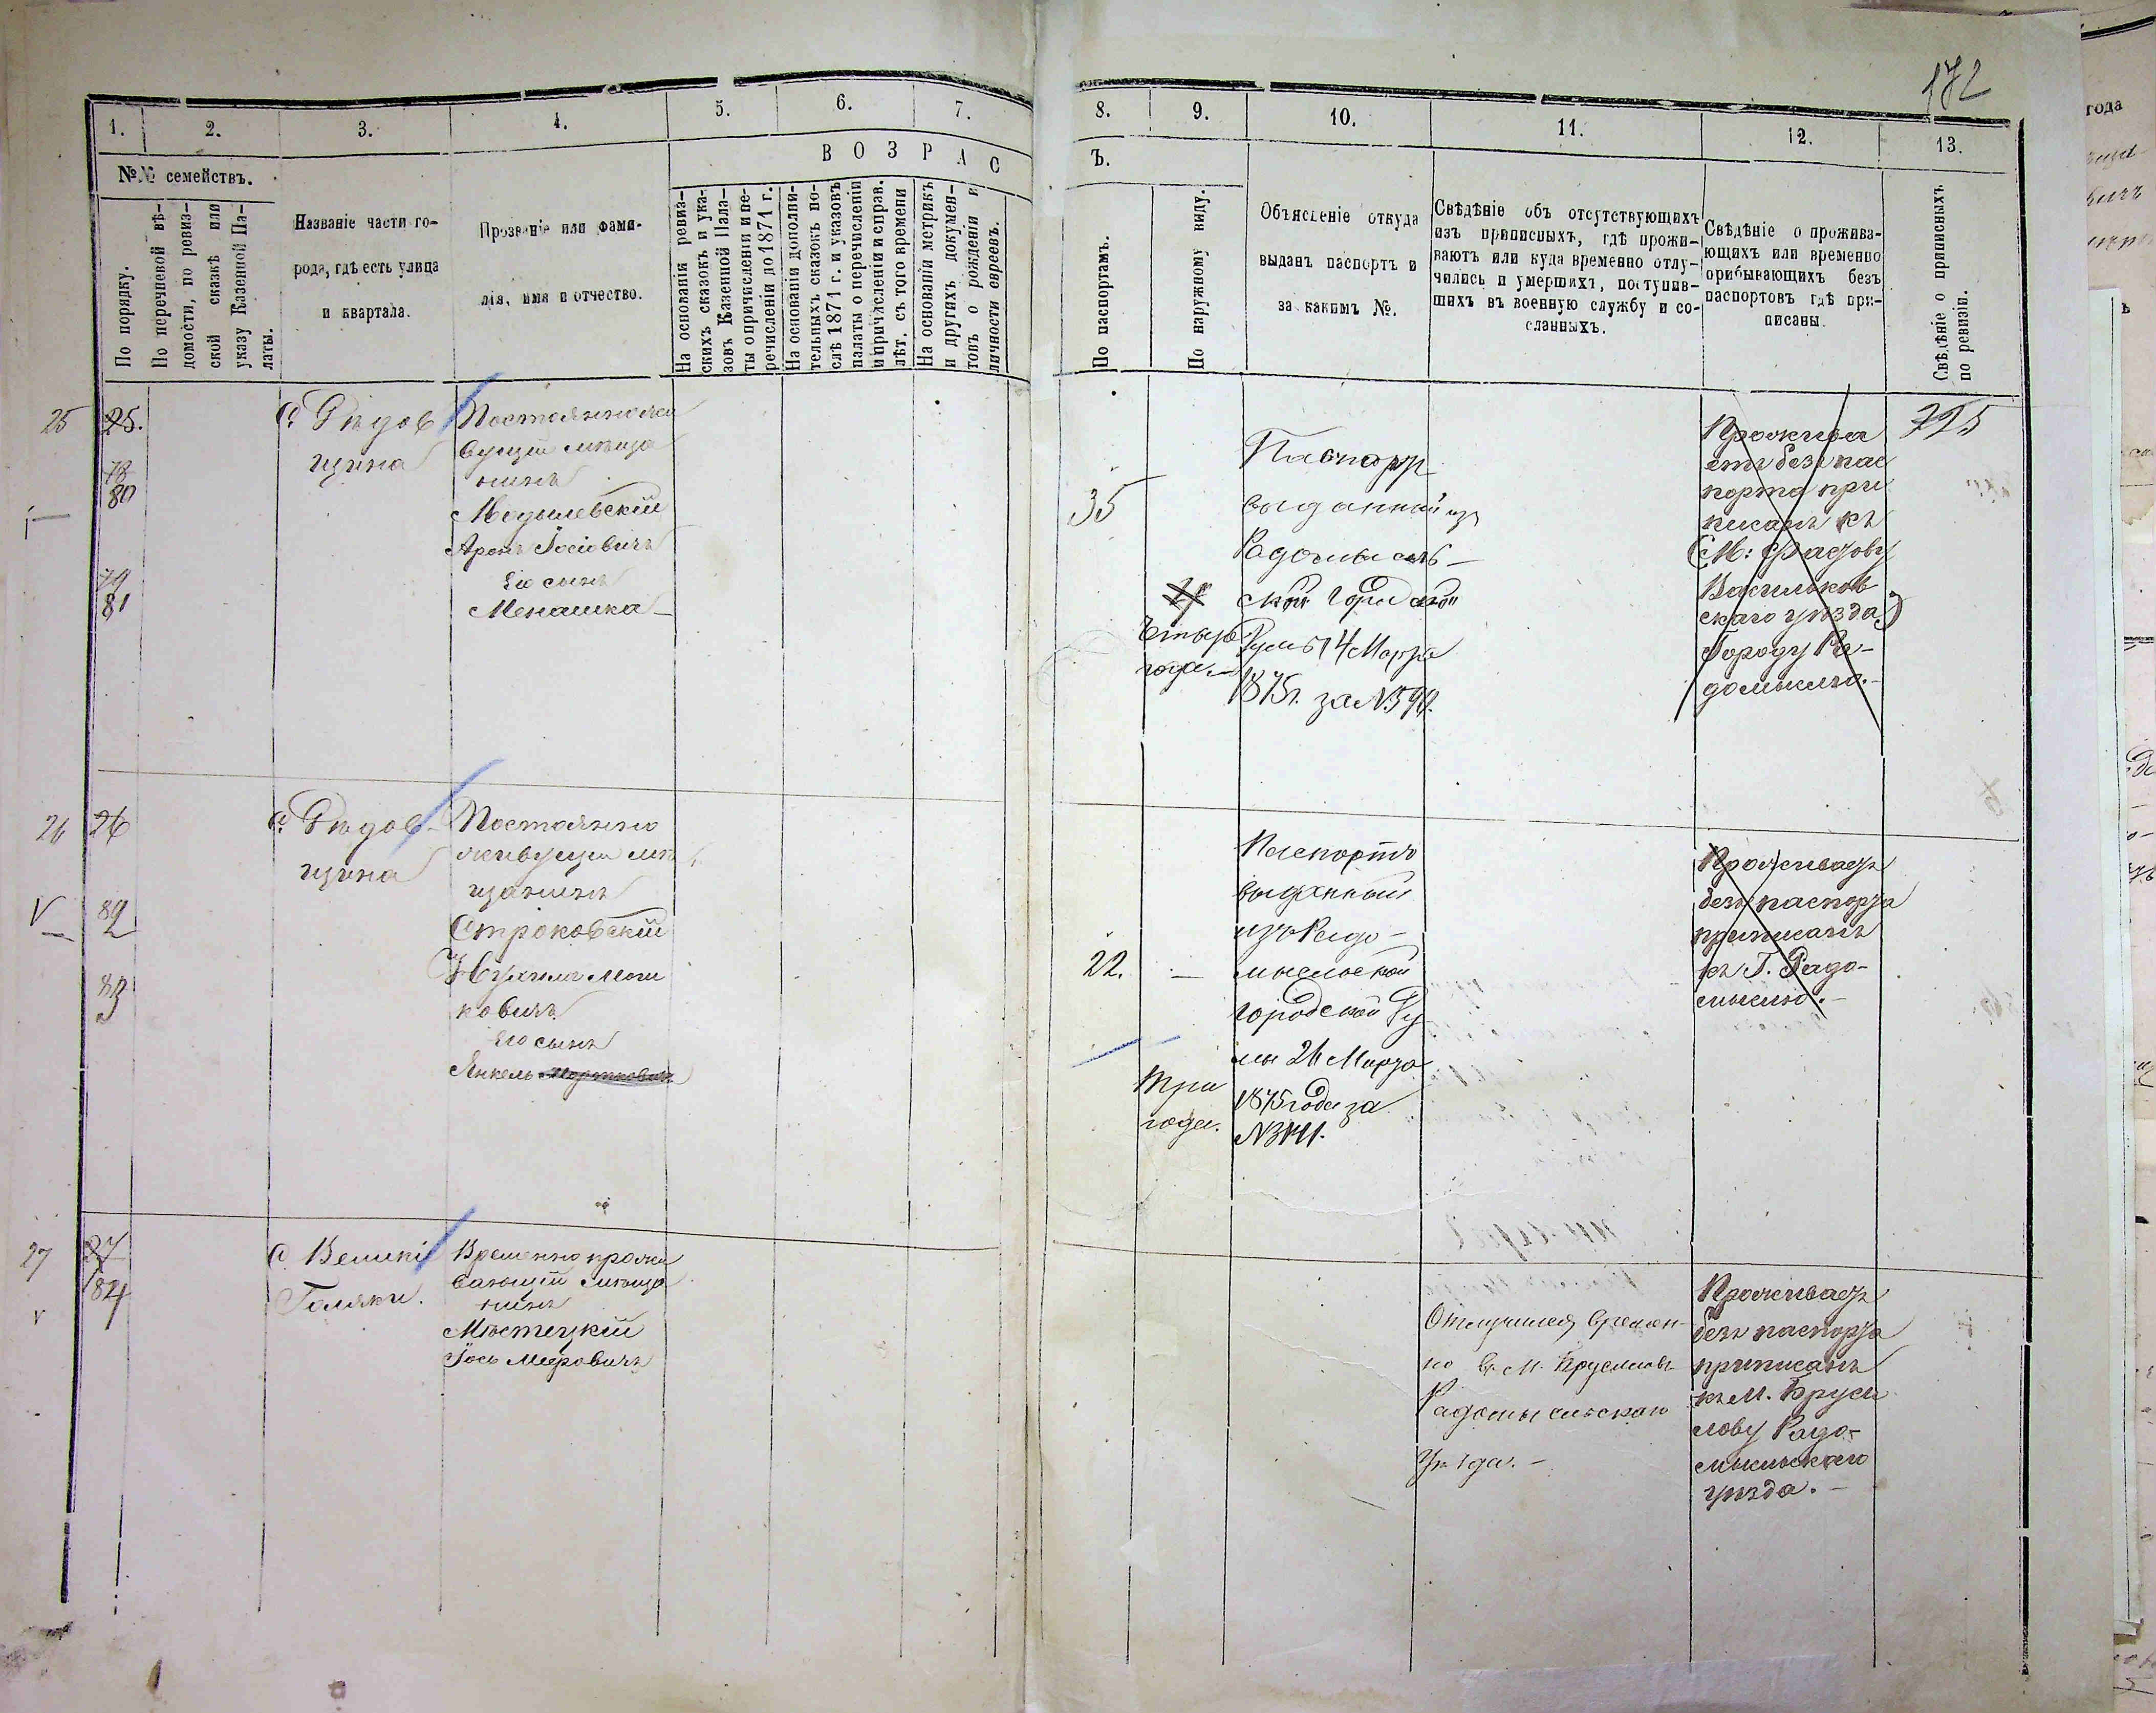 172
1.
2.
3.
4.
5.
6.
7.
8.
9.
10.
11.
12.
13.
№№ семействъ.
ВОЗРАС
Ъ.
По порядку.
По перечневой вѣ-
домости, по ревиз-
ской сказкѣ или
указу Казенной Па-
латы.
Названіе части го-
рода, гдѣ есть улица
и квартала.
Прозваніе или фами-
лія, имя и отчество.
На основаніи ревиз-
скихъ сказокъ и ука-
зовъ Казенной Пала-
ты о причисленіи и пе-
речисленіи до 1871 г.
На основаніи дополни-
тельныхъ сказокъ по-
слѣ 1871 г. и указовъ
палаты о перечисленіи
и причисленіи и справ.
лѣт. съ того времени
На основаніи метрикъ
и другихъ докумен-
товъ о рожденіи и
личности евреевъ.
По паспортамъ.
По наружному виду.
Объясненіе откуда
выданъ паспортъ и
за какимъ №.
Свѣдѣніе объ отсутствующихъ
изъ приписныхъ, гдѣ прожи-
ваютъ или куда временно отлу-
чились и умершихъ, поступив-
шихъ въ военную службу и со-
сланныхъ.
Свѣдѣніе о прожива-
ющихъ или временно
прибывающихъ безъ
паспортовъ гдѣ при-
писаны.
Свѣдѣніе о приписныхъ
по ревизіи.
25
25.
78
80
79
81
с. Дѣдов
щина
Постоянножи
вущій мѣща
нинъ
Аронъ Іосіовичъ
Его сынъ
Менашка
35
Четыре
года.
Паспорт
выданный из
Радомысль-
ской Городской
Думы 14 Марта
1875г. за №
Прожива
етъ безъ пас
порта при
писанъ къ
Васильков
скаго уѣзда)
Городу Ра-
домыслю.
26
26
V
82
83
с. Дѣдов-
щина
Постоянно
живущій мѣ
щанинъ
Строковскій
Нухимъ Мош
ковичъ
Его сынъ
Янкель
22.
Три
года.
Паспортъ
выданный
изъ Радо-
мысльской
городской Ду
мы 26 Марта
1875 года за
Проживаетъ
безъ паспорта
приписанъ
къ Г. Радо-
мыслю.
27
27
84
с. Великі
Голяки.
Временно прожи
вающій мѣща
нинъ
Мѣстецкій
Іось Меровичъ
Отлучился времен-
но въ М. Брусиловъ
Радомысльскаго
Уѣзда.
Проживаетъ
безъ паспорта
приписанъ
къ М. Бруси
лову Радо-
мысльскаго
уѣзда.
года